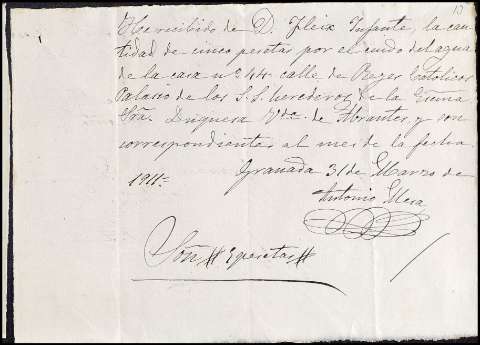 He recibido de D. Fleix Infante, la can
tidad de cinco pesetas por el cuido del agua
de la casa nº 44 calle de Reyes Catolicos
Palacio de los S.S. herederos de la Exma
Sra. Duquesa Vda. de Abrantes, y son
correspondientes al mes de la fecha
Granada 31 de Marzo de
1911=
Antonio Mesa
Son # 5 pesetas #